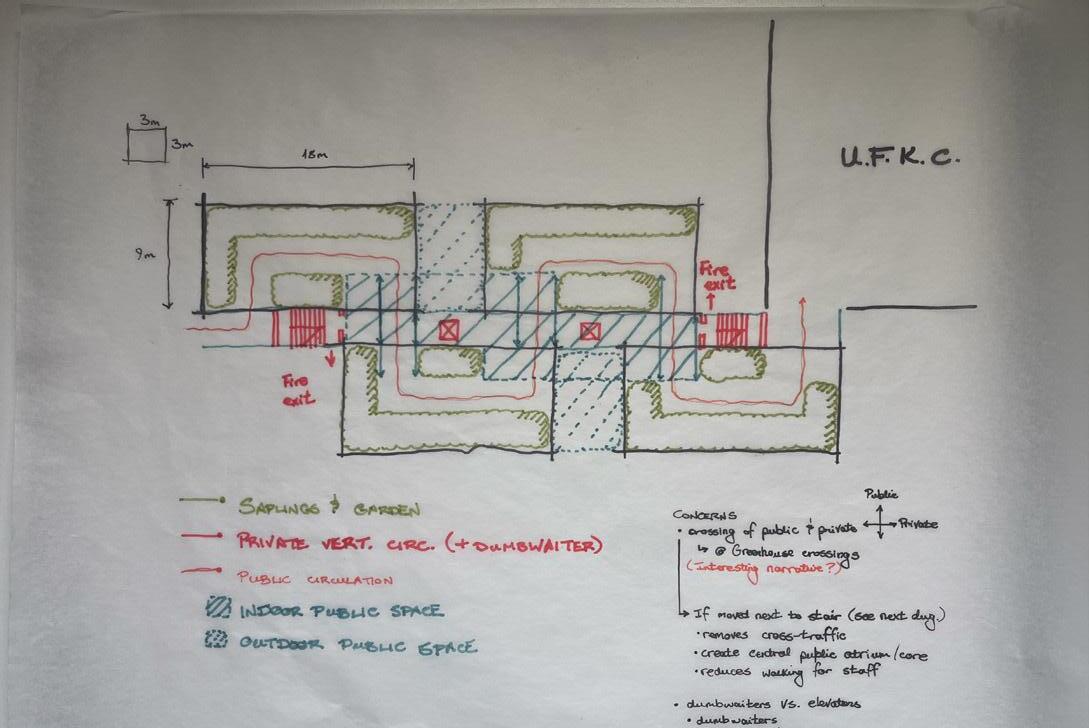 3m
3m
18m
U.F.K.C.
9m
Fire
exit
Fire
exit
SAPLINGS & GARDEN
PRIVATE VERT. CIRC. (+DUMBWAITER)
PUBLIC CIRCULATION
INDOOR PUBLIC SPACE
OUTDOOR PUBLIC SPACE
Public
Private
CONCERNS
• crossing of public & private
↳ @ Greenhouse crossings
(Interesting narrative?)
→ If moved next to stair (see next dwg.)
• removes cross-traffic
• create central public atrium/core
• reduces walking for staff
• dumbwaiters vs. elevators
• dumbwaiters